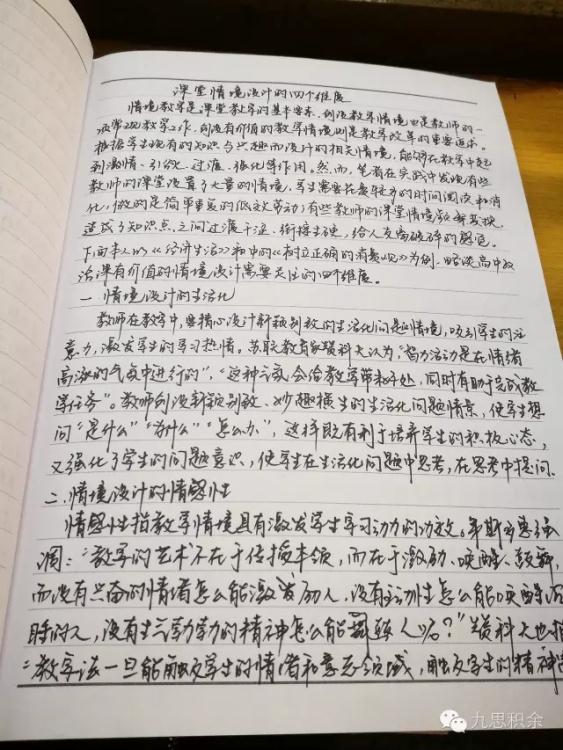 课堂情境设计的四个维度
情境教学是课堂教学的基本要求,创设教学情境也是教师的一
项常规教学工作,创设有价值的教学情境则是教学改革的重要追求。
根据学生现有的知识与兴趣而设计的相关情境,能够在教学中起
到激情、引伸、过渡、强化等作用。然而,笔者在实践中发现有些
教师的课堂设置了大量的情境,学生需要花费较多的时间阅读和消
化,做的是简单重复的低效劳动;有些教师的课堂情境频繁变换,
造成了知识点之间过渡干涩、衔接生硬,给人支离破碎的感觉。
下面本人以《经济生活》和中的《树立正确的消费观》为例,略谈高中政
治课有价值的情境设计需要关注的四个维度。
一 情境设计的生活化
教师在教学中,要精心设计新颖别致的生活化问题情境,吸引学生的注
意力,激发学生的学习热情。苏联教育家赞科夫认为,"智力活动是在情绪
高涨的气氛中进行的","这种方式会给教学带来好处,同时有助于完成教
学任务"。教师创设新颖别致、妙趣横生的生活化问题情景,使学生想
问"是什么""为什么""怎么办",这样既有利于培养学生的积极心态,
又强化了学生的问题意识,使学生在生活化问题中思考,在思考中提问.
二.情境设计的情感性
情感性指教学情境具有激发学生学习动力的功效。第斯多惠强
调:"教学的艺术不在于传授本领,而在于激励、唤醒、鼓舞,
而没有兴奋的情绪怎么能激发励人,没有主动性怎么能唤醒沉
睡的人,没有生气勃勃的精神怎么能鼓舞人呢?"赞科夫也指
"教学法一旦能触及学生的情绪和意志领域,触及学生的精神
九思积余